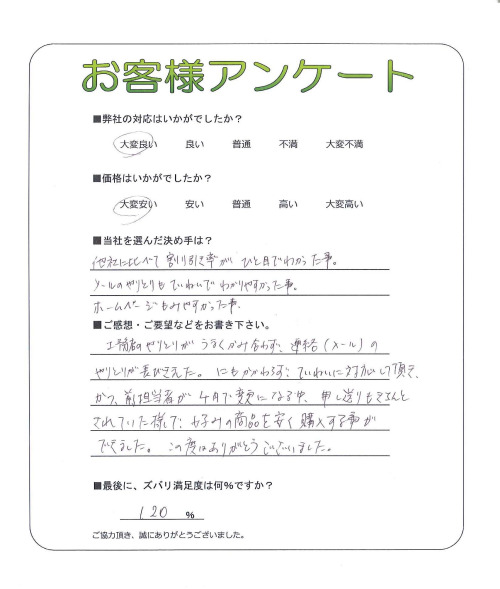 お客様アンケート
■弊社の対応はいかがでしたか?
大変良い 良い 普通 不満 大変不満
■価格はいかがでしたか?
大変安い 安い 普通 高い 大変高い
■当社を選んだ決め手は?
他社に比べて割り引き率が、ひと目でわかった事。
メールのやりとりもていねいでわかりやすかった事。
ホームページもみやすかった事。
■ご感想・ご要望などをお書き下さい。
工務店のやりとりがうまくかみ合わず、連絡(メール)の
やりとりが長びきました。にもかかわらず、ていねいに対応して頂き、
かつ、前担当者が4月で変更になる中、申し送りもきちんと
されていた様で、好みの商品を安く購入する事が
できました。この度はありがとうございました。
■最後に、ズバリ満足度は何%ですか?
120 %
ご協力頂き、誠にありがとうございました。